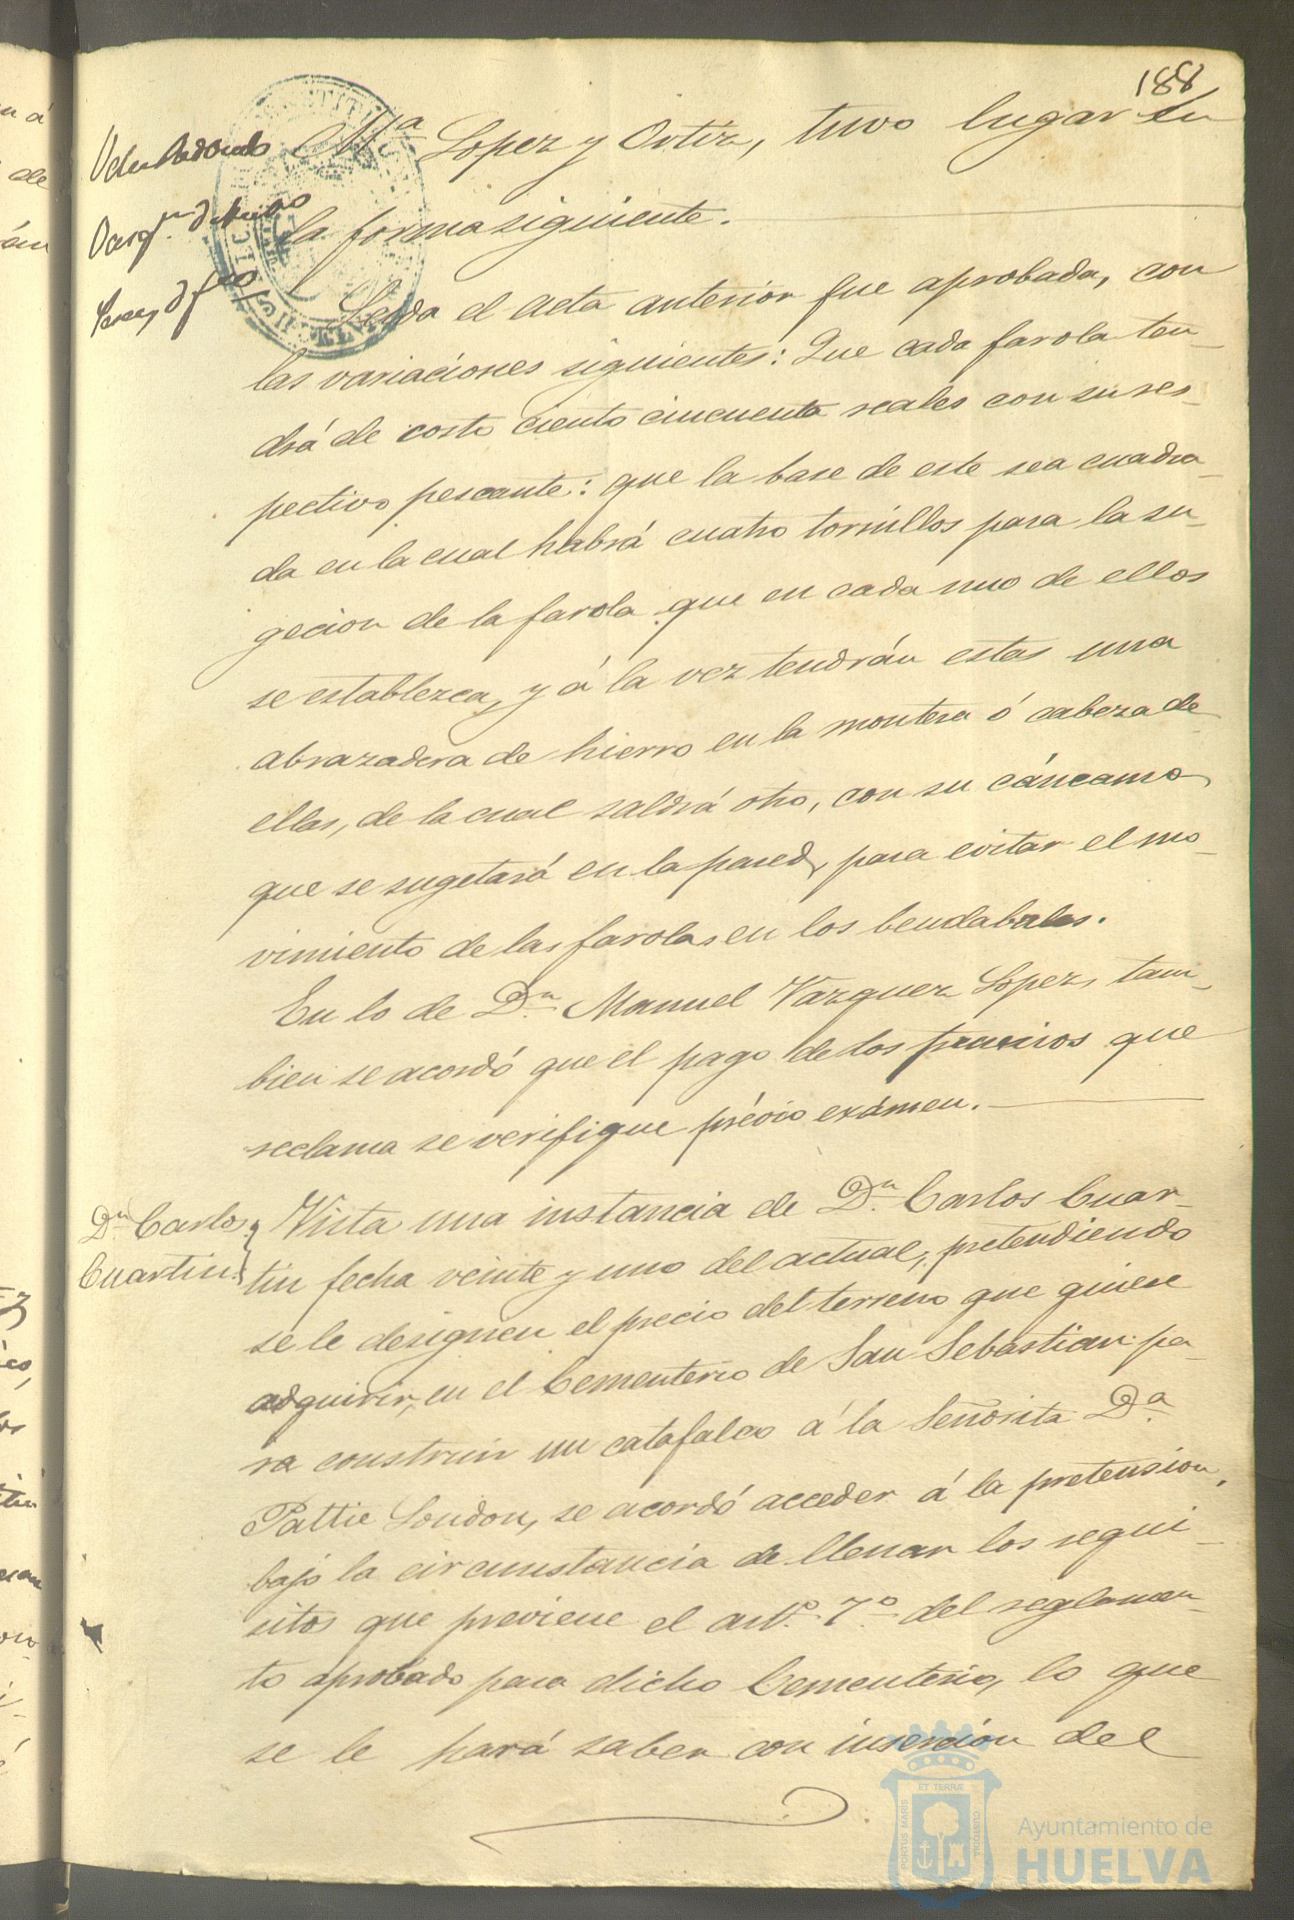 188
Mª Lopez y Ortiz, tuvo lugar en
la forma siguiente.
Leida el acta anterior fue aprobada, con
las variaciones siguientes: Que cada farola ten-
drá de costo ciento cincuenta reales con su res-
pectivo pescante: que la base de este sea cuadra-
da en la cual habrá cuatro tornillos para la su-
gecion de la farola que en cada uno de ellos
se establezca, y á la vez tendrán estas una
abrazadera de hierro en la montera ó cabeza de
ellas, de la cual saldrá otro, con su cáncamo
que se sugetará en la pared, para evitar el mo-
vimiento de las farolas en los bendabales.
En lo de Dn. Manuel Vazquez Lopez, tam-
bien se acordó que el pago de los premios que
reclama se verifique prévio exámen.
Dn Carlos
Cuartin
Vista una instancia de Dn. Carlos Cuar-
tin fecha veinte y uno del actual, pretendiendo
se le designen el precio del terreno que quiere
adquirir, en el Cementerio de San Sebastian pa-
ra construir un catafalco á la Señorita Dª.
Pattie London, se acordó acceder á la pretension,
bajo la circunstancia de llenar los requi-
sitos que previene el artº. 7º. del reglamen-
to aprobado para dicho Cementerio, lo que
se le hará saber con insercion del
PORTUS MARIS ET TERRÆ CUSTODIA
Ayuntamiento de
HUELVA